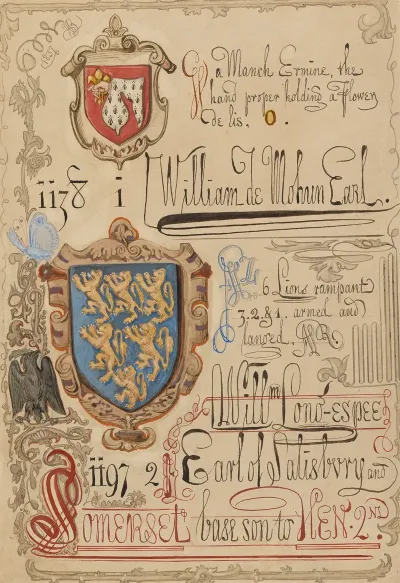 G a Manch Ermine, the
hand proper holding a flower
de lis, o.
1138 1 William de Mohun Earl.
Az 6 Lions rampant
3. 2. & 1. armed and
langed,
Willm Longespee
1197 2 Earl of Salisbury and
Somerset base son to Hen. 2nd